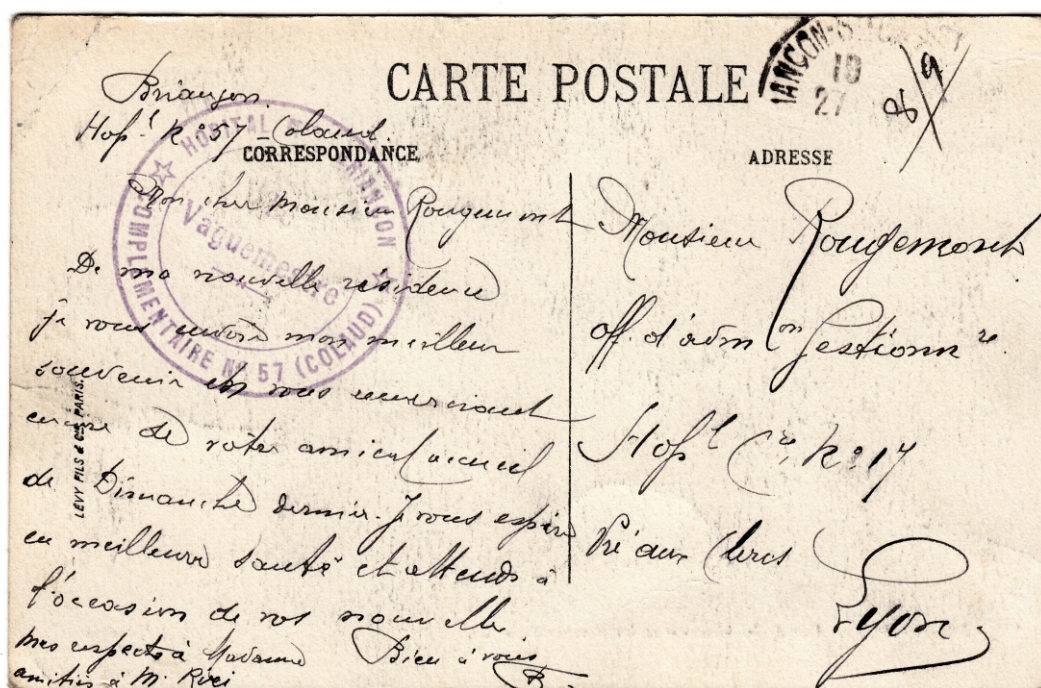 CARTE POSTALE
IANÇON-
10
27
8
9
Briançon.
Hop.l No 57 - Colaud
CORRESPONDANCE
ADRESSE
HOPITAL DE BRIANÇON
COMPLÉMENTAIRE No 57 (COLAUD)
Vaguemestre
Mon cher Monsieur Rougemont
De ma nouvelle résidence
je vous envoie mon meilleur
souvenir en vous remerciant
encore de votre amical accueil
de Dimanche dernier. Je vous espère
en meilleure santé et attends à
l'occasion de vos nouvelle
Bien à vous
mes respects à Madame
amitiés à M.
LEVY FILS & Cie PARIS.
Monsieur Rougemont
off. d'adm.on Gestionn re
Hop.l C.re No 17
Pré aux Clercs
Lyon